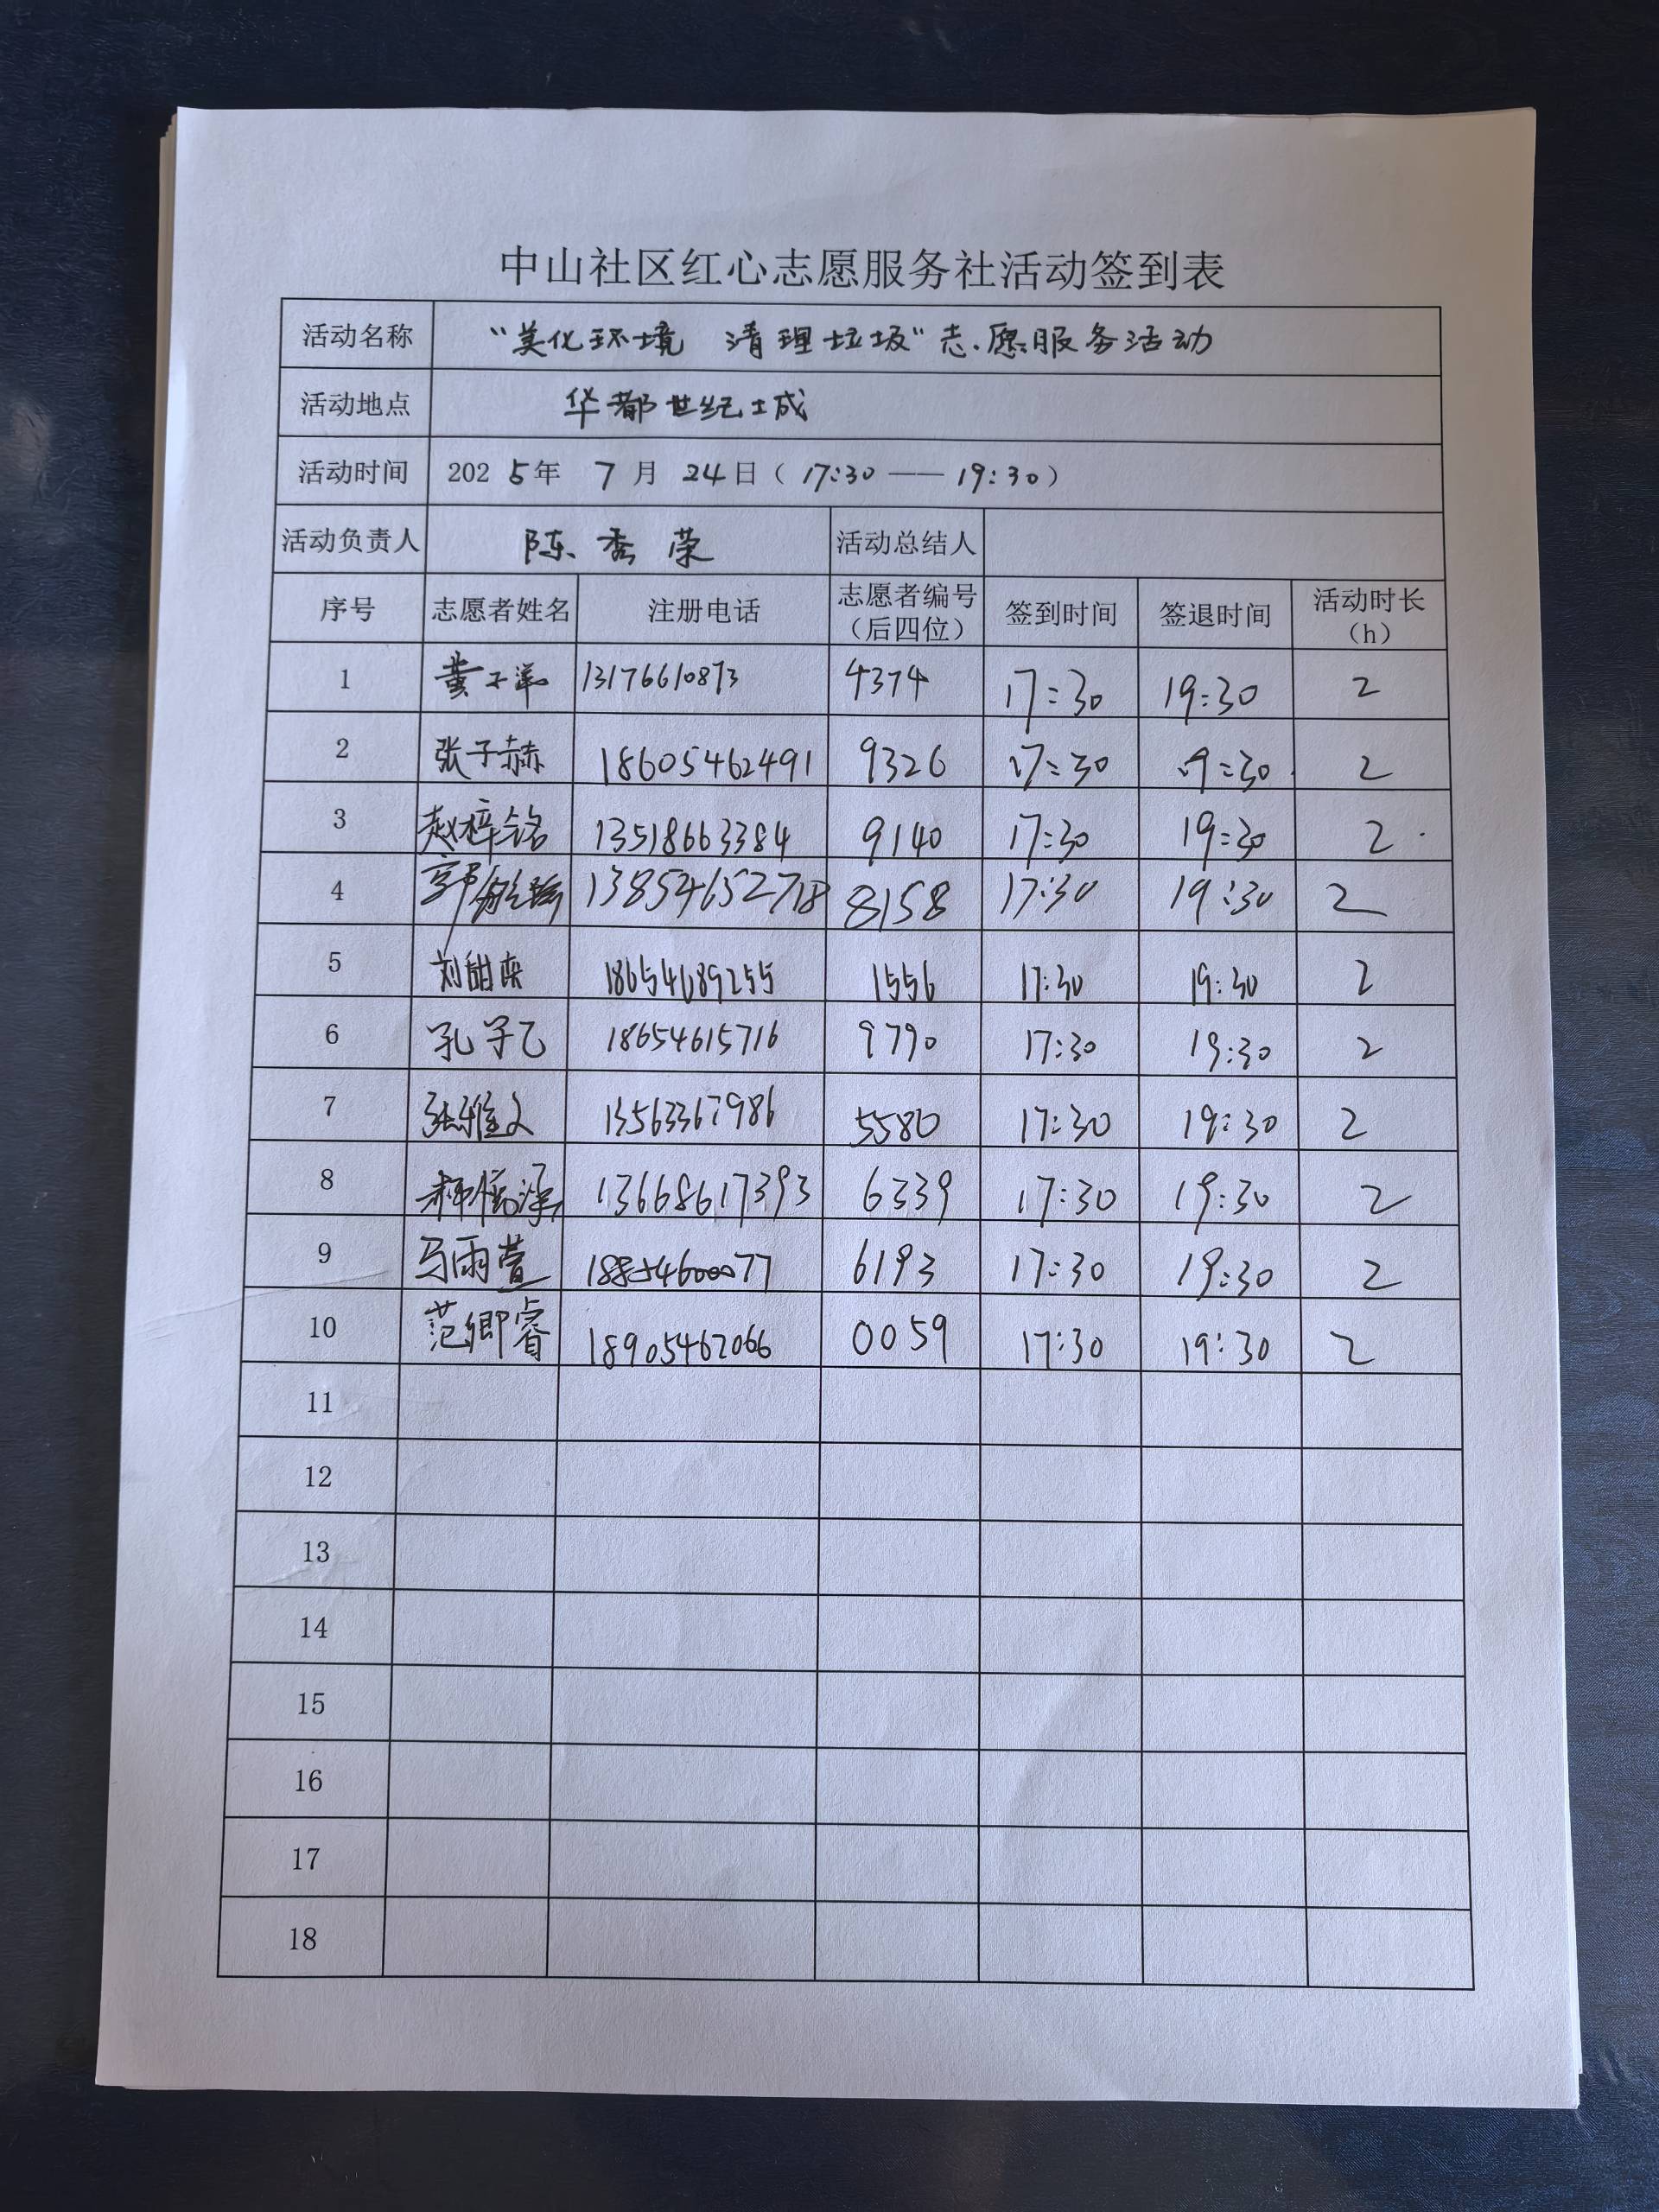 中山社区红心志愿服务社活动签到表
活动名称 “美化环境 清理垃圾”志愿服务活动
活动地点 华都世纪城
活动时间 2025年 7月 24日（17:30——19:30）
活动负责人 陈秀荣 活动总结人
序号 志愿者姓名 注册电话 志愿者编号（后四位） 签到时间 签退时间 活动时长（h）
1 13176610873 4374 17:30 19:30 2
2 张子赫 18605462491 9326 17:30 19:30 2
3 赵梓铭 13518663384 9140 17:30 19:30 2
4 13854652718 8158 17:30 19:30 2
5 18654689255 1556 17:30 19:30 2
6 孔子乙 18654615716 9790 17:30 19:30 2
7 张雅文 13563367986 5580 17:30 19:30 2
8 13668617393 6339 17:30 19:30 2
9 马雨萱 18854600077 6193 17:30 19:30 2
10 范卿睿 18905462066 0059 17:30 19:30 2
11
12
13
14
15
16
17
18